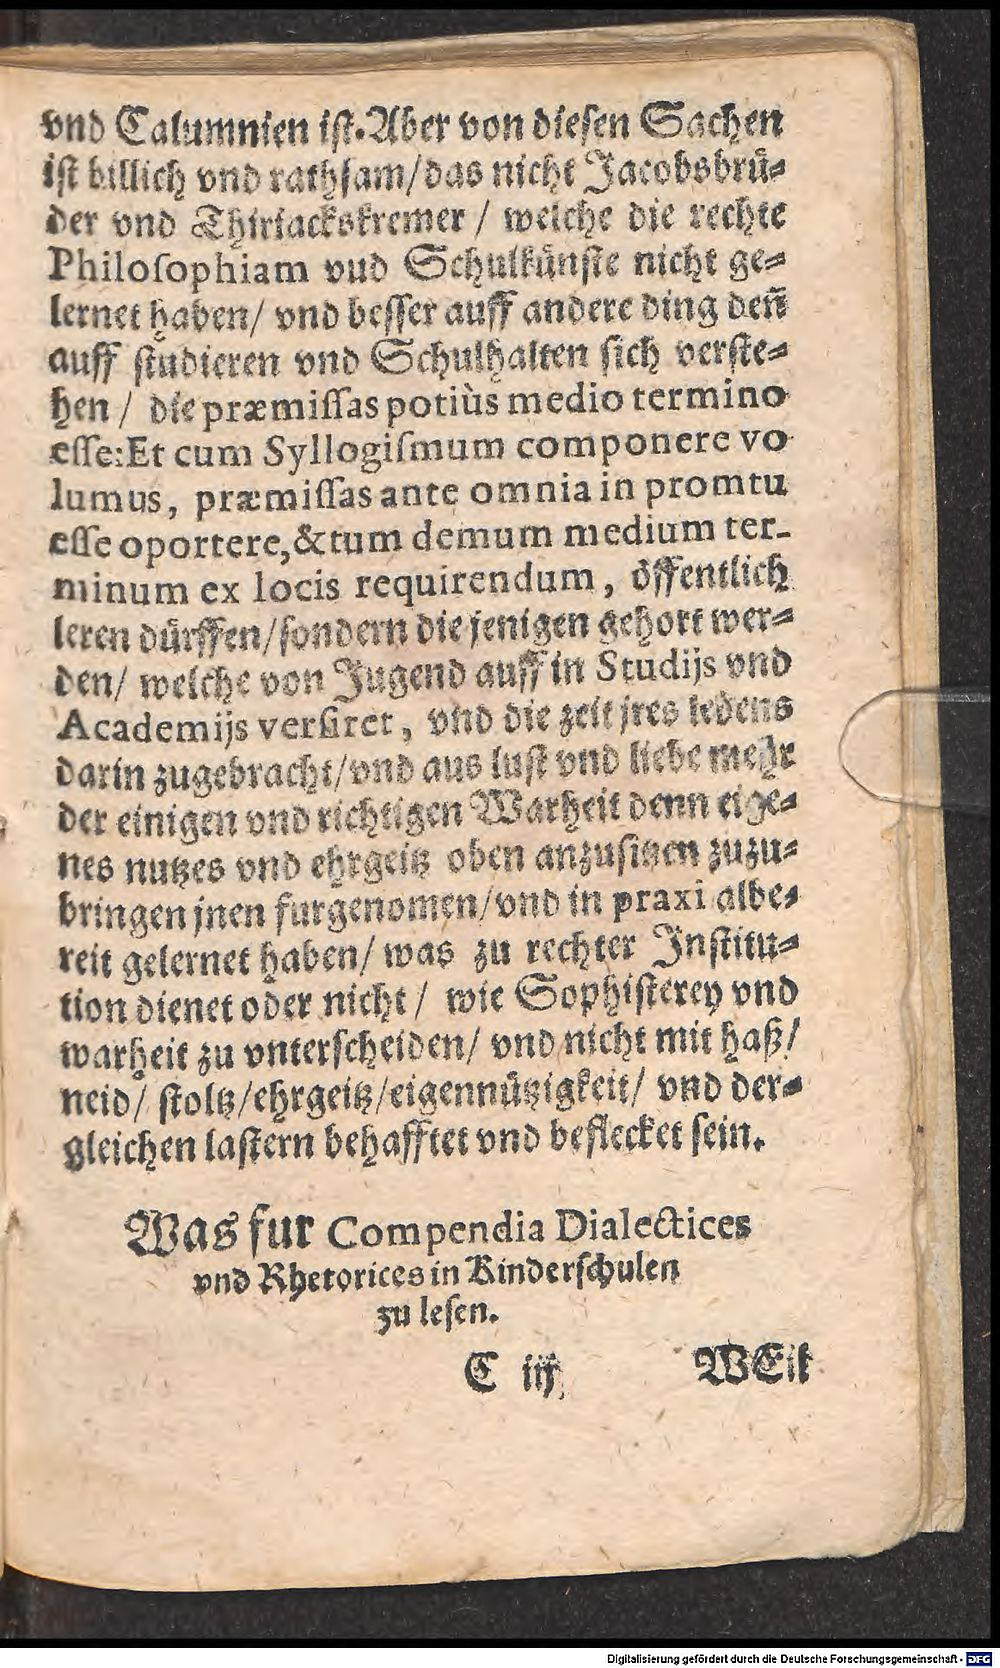 vnd Calumnien iſt. Aber von dieſen Sachen
iſt billich vnd rathſam/ das nicht Jacobsbruͤ⸗
der vnd Thiriackskremer / welche die rechte
Philoſophiam vud Schulkuͤnſte nicht ge⸗
lernet haben/ vnd beſſer auff andere ding den̄
auff ſtudieren vnd Schulhalten ſich verſte⸗
hen / die præmiſſas potiùs medio termino
eſſe: Et cum Syllogiſmum componere vo
lumus, præmiſſas ante omnia in promtu
eſſe oportere, & tum demum medium ter-
minum ex locis requirendum, oͤffentlich
leren duͤrffen/ ſondern die jenigen gehort wer⸗
den/ welche von Jugend auff in Studijs vnd
Academijs verſiret, vnd die zeit jres lebens
darin zugebracht/ vnd aus luſt vnd liebe mehr
der einigen vnd richtigen Warheit denn eige⸗
nes nutzes vnd ehrgeitz oben anzuſitzen zuzu⸗
bringen jnen furgenomen/ vnd in praxi albe⸗
reit gelernet haben/ was zu rechter Inſtitu⸗
tion dienet oder nicht / wie Sophiſterey vnd
warheit zu vnterſcheiden/ vnd nicht mit haß/
neid/ ſtoltz/ ehrgeitz/ eigennuͤtzigkeit/ vnd der⸗
gleichen laſtern behafftet vnd beflecket ſein.
Was fur Compendia Dialectices
vnd Rhetorices in Kinderſchulen
zu leſen.
C iij WEil
Digitalisierung gefördert durch die Deutsche Forschungsgemeinschaft - DFG